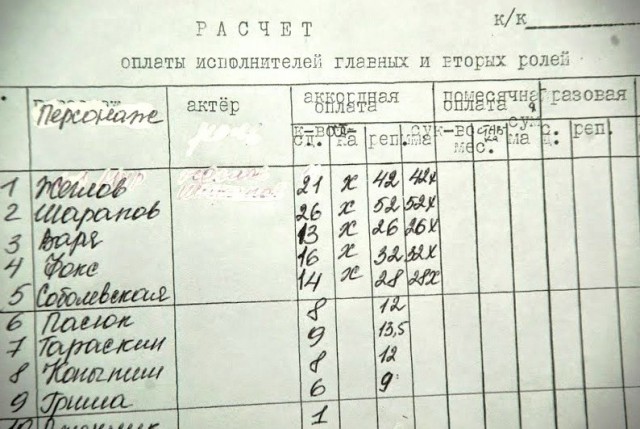 РАСЧЕТ
к/к
оплаты исполнителей главных и вторых ролей
Персонаж актёр аккордная оплата помесячная оплата разовая
к-во сд. ка реп. сумма к-во мес. сумма с.д. реп.
1 Жеглов 21 х 42 42х
2 Шарапов 26 х 52 52х
3 Варя 13 х 26 26х
4 Фокс 16 х 32 32х
5 Соболевская 14 х 28 28х
6 Пасюк 8 12
7 Тараскин 9 13,5
8 Копытин 8 12
9 Гриша 6 9
10 1